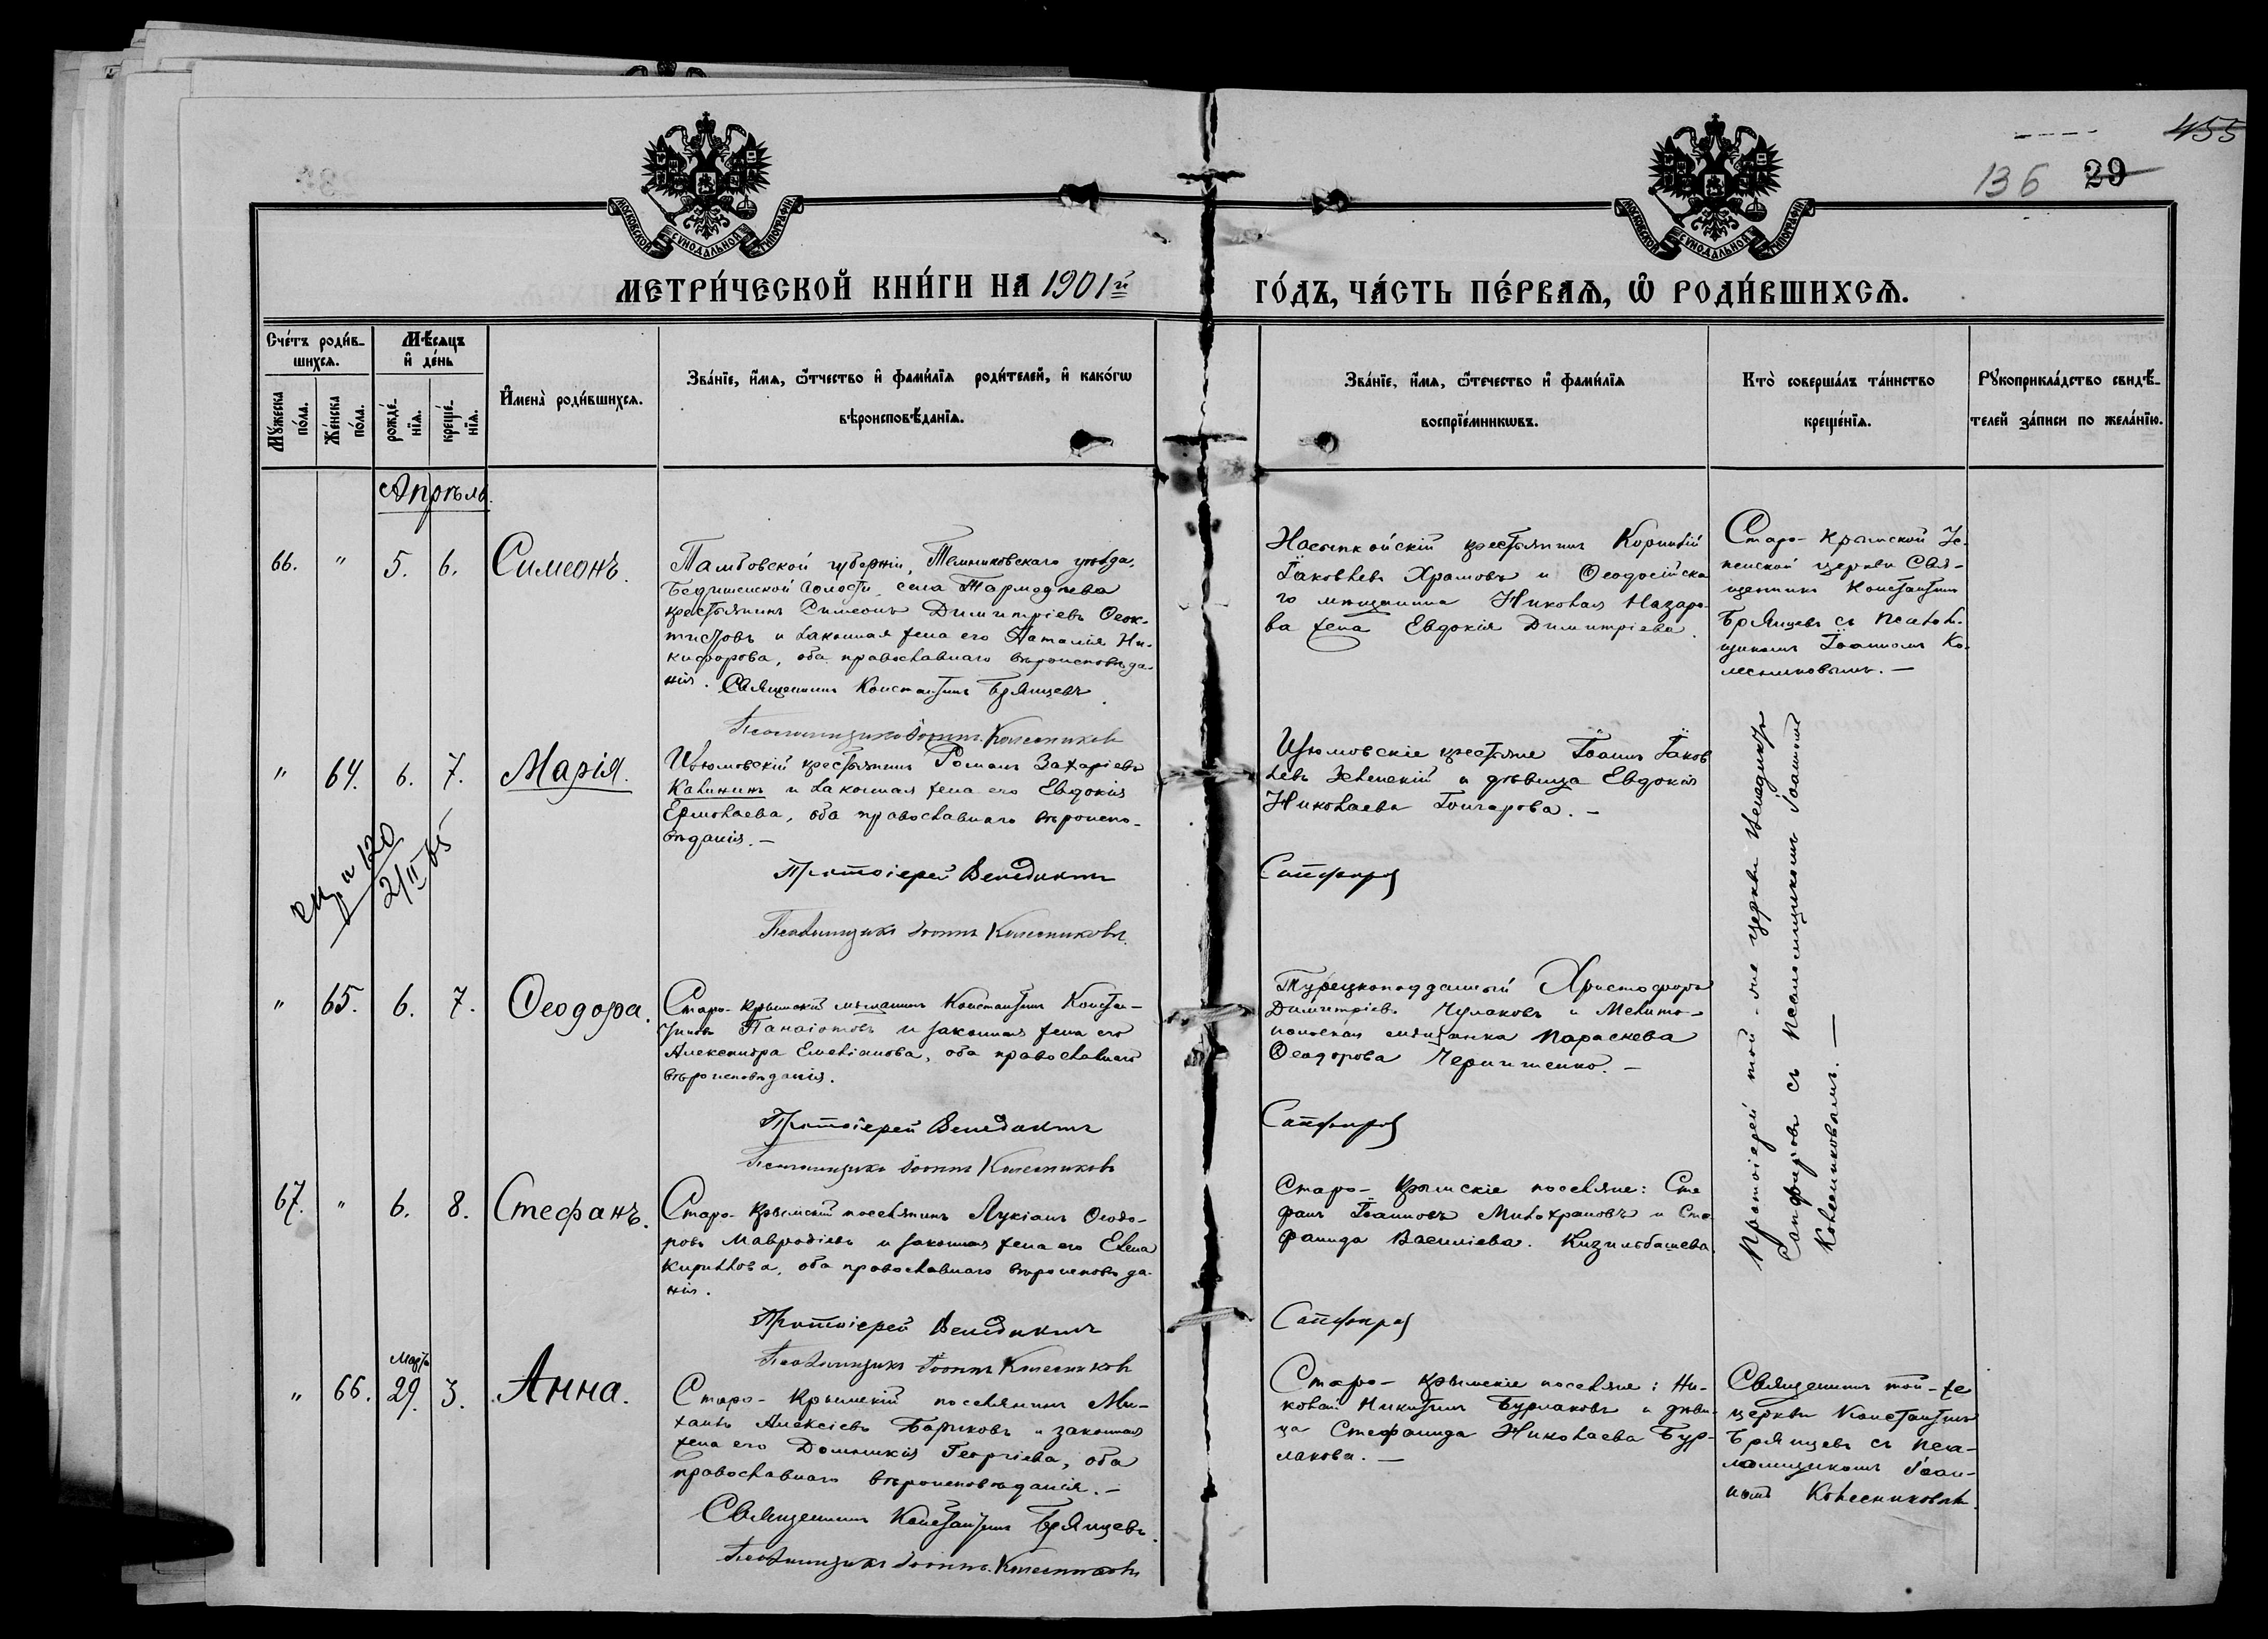 455
136 29
МОСКОВСКОЙ СУНОДАЛЬНОЙ ТИПОГРАФІИ
МОСКОВСКОЙ СУНОДАЛЬНОЙ ТИПОГРАФІИ
МЕТРИ́ЧЕСКОЙ КНИ́ГИ НА 1901й ГО́ДЪ, ЧА́СТЬ ПЕ́РВАѦ, Ѡ҆ РОДИ́ВШИХСѦ.
Сче́тъ роди́в-
шихсѧ.
Мѣ́сѧцъ
и҆ де́нь
Мꙋ́жеска
по́ла.
Же́нска
по́ла.
рожде́-
нїѧ.
креще́-
нїѧ.
И҆мена̀ роди́вшихсѧ.
Зва́нїе, и҆́мѧ, ѻ҆́тчество и҆ фами́лїѧ роди́телей, и҆ како́гѡ
вѣроисповѣ́данїѧ.
Зва́нїе, и҆́мѧ, ѻ҆те́чество и҆ фами́лїѧ
воспрїе́мникѡвъ.
Кто̀ соверша́лъ та́инство
креще́нїѧ.
Рꙋкоприкла́дство свидѣ́-
телей за́писи по жела́нїю.
Апрѣль.
66. " 5. 6. Симеонъ.
Тамбовской губерніи, Темниковскаго уѣзда,
волости, села
крестьянинъ Симеонъ Димитріевъ Ѳеок-
тистовъ и законная жена его Наталія Ни-
кифорова, оба православнаго вѣроисповѣда-
нія. Священникъ Константинъ Брянцевъ.
Псаломщикъ Іоаннъ Колесниковъ
Насыпкойскій крестьянинъ Корнилій
Іаковлевъ Храмовъ и Ѳеодосійска
го мѣщанина Николая Назаро-
ва жена Евдокія Димитріева.
Старо-Крымской Ус-
пенской церкви Свя-
щенникъ Константинъ
Брянцевъ съ псалом-
щикомъ Іоанномъ Ко-
лесниковымъ. —
" 64. 6. 7. Марія.
Изюмовскій крестьянинъ Романъ Захаріевъ
Калининъ и законная жена его Евдокія
Ермолаева, оба православнаго вѣроиспо-
вѣданія. —
Протоіерей Венедиктъ Сапфировъ
Псаломщикъ Іоаннъ Колесниковъ.
Изюмовскіе крестьяне Іоаннъ Іаков
левъ Зеленскій и дѣвица Евдокія
Николаева Гончарова. —
120
2/II 65
Протоіерей той-же церкви Венедиктъ
Сапфировъ съ псаломщикомъ Іоанномъ
Колесниковымъ. —
" 65. 6. 7. Ѳеодора.
Старо-Крымскій мѣщанинъ Константинъ Констан-
тиновъ Панаіотовъ и законная жена его
Александра Емеліанова, оба православнаго
вѣроисповѣданія.
Протоіерей Венедиктъ Сапфировъ
Псаломщикъ Іоаннъ Колесниковъ
Турецкоподданный Христофоръ
Димитріевъ Чулаковъ и Мелито-
польская мѣщанка Параскева
Ѳеодорова Чернишенко. —
67. " 6. 8. Стефанъ.
Старо-Крымскій поселянинъ Лукіанъ Ѳеодо-
ровъ Мавродіевъ и законная жена его Елена
Кириллова, оба православнаго вѣроисповѣда-
нія.
Протоіерей Венедиктъ Сапфировъ
Псаломщикъ Іоаннъ Колесниковъ
Старо-Крымскіе поселяне: Сте
фанъ Іоанновъ Милохрановъ и Сте-
фанида Василіева Кизильбашева.
" 66. Марта 29. 3. Анна.
Старо-Крымскій поселянинъ Ми-
хаилъ Алексіевъ Бариковъ и законная
жена его Домникія Георгіева, оба
православнаго вѣроисповѣданія. —
Священникъ Константинъ Брянцевъ.
Псаломщикъ Іоаннъ Колесниковъ
Старо-Крымскіе поселяне: Ни-
колай Никитинъ Бурлаковъ и дѣви-
ца Стефанида Николаева Бур-
лакова. —
Священникъ той-же
церкви Константинъ
Брянцевъ съ пса-
ломщикомъ Іоан-
номъ Колесниковымъ.